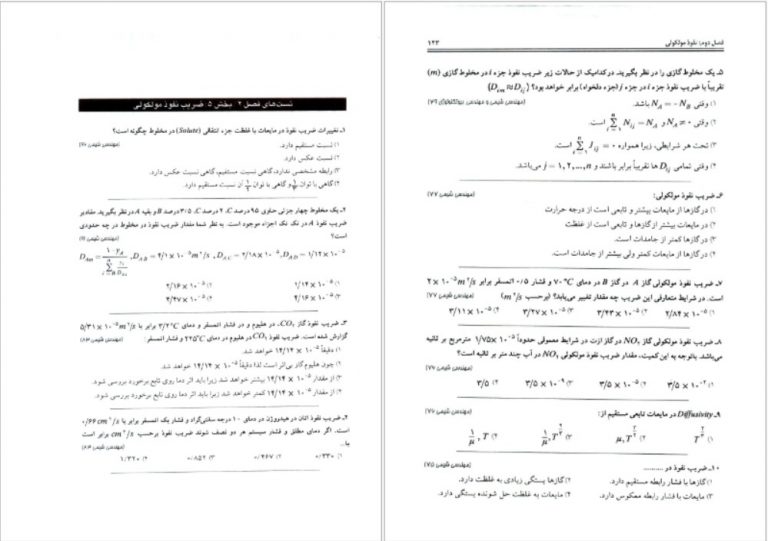 تست‌های فصل ۲ - بخش ۵: ضریب نفوذ مولکولی
۱ـ تغییرات ضریب نفوذ در مایعات با غلظت جزء انتقالی (Solute) در مخلوط چگونه است؟
۱) نسبت مستقیم دارد.
۲) نسبت عکس دارد.
۳) رابطه مشخصی ندارد، گاهی نسبت مستقیم، گاهی نسبت عکس دارد.
۲ـ یک مخلوط چهار جزئی حاوی ۹۵ درصد
در نظر بگیرید. مقادیر
ضریب نفوذ A در تک تک اجزاء موجود است. به نظر شما مقدار ضریب نفوذ در مخلوط در چه حدودی
است؟
۱) ۱/۱۴ × ۱۰⁻⁵ ۲) ۲/۱۶ × ۱۰⁻⁵
۳) ۴/۱۶ × ۱۰⁻⁵ ۴) ۴/۴۷ × ۱۰⁻⁵
۳ـ ضریب نفوذ گاز CO₂، در هلیوم و در فشار اتمسفر و دمای ۳/۲°C برابر با ۵/۳۱ × ۱۰⁻⁵ m²/s
گزارش شده است. ضریب نفوذ CO₂ در هلیوم در دمای ۲۲۵°C و فشار اتمسفر:
۱) دقیقاً ۱۴/۱۴ × ۱۰⁻⁵ خواهد شد.
۲) چون هلیوم گاز بی‌اثر است لذا دقیقاً ۱۴/۱۴ × ۱۰⁻⁵ خواهد شد.
۳) از مقدار ۱۴/۱۴ × ۱۰⁻⁵ بیشتر خواهد شد زیرا باید اثر دما روی تابع برخورد بررسی شود.
۴) از مقدار ۱۴/۱۴ × ۱۰⁻⁵ کمتر خواهد شد زیرا باید اثر دما روی تابع برخورد بررسی شود.
۴ـ ضریب نفوذ اتان در هیدروژن در دمای ۱۰ درجه سانتی‌گراد و فشار یک اتمسفر برابر با ۰/۶۹ cm²/s
است. اگر دمای مطلق و فشار سیستم هر دو نصف شوند ضریب نفوذ برحسب cm²/s برابر است
با...
۱) ۰/۳۳۰ ۲) ۰/۴۶۷ ۳) ۰/۸۵۲ ۴) ۱/۳۲۰
فصل دوم: نفوذ مولکولی
۱۲۳
۵ـ یک مخلوط گازی را در نظر بگیرید. در کدامیک از حالات زیر ضریب نفوذ جزء i در مخلوط گازی (m)
تقریباً با ضریب نفوذ جزء i در جزء j (جزء دلخواه) برابر خواهد بود؟
۱) وقتی N_A = −N_B باشد.
۴) وقتی تمامی D_ij ها تقریباً برابر باشند و j = ۱,۲,...,n می‌باشد.
۶ـ ضریب نفوذ مولکولی: (مهندسی شیمی ۷۷)
۱) در گازها از مایعات بیشتر و تابعی است از درجه حرارت
۲) در مایعات بیشتر از گازها و تابعی است از غلظت
۳) در گازها کمتر از جامدات است.
۴) در گازها از مایعات کمتر ولی بیشتر از جامدات است.
۷ـ ضریب نفوذ مولکولی گاز A در گاز B در دمای ۷۰°C و فشار ۰/۵ اتمسفر برابر ۲ × ۱۰⁻⁵ m²/s
است. در شرایط متعارفی این ضریب چه مقدار تغییر می‌یابد؟ (برحسب m²/s) (مهندسی شیمی ۷۷)
۱) ۲/۸۴ × ۱۰⁻⁵ ۲) ۳/۴۳ × ۱۰⁻⁵ ۳) ۳/۲۷ × ۱۰⁻⁵ ۴) ۳/۱۱ × ۱۰⁻⁵
۸ـ ضریب نفوذ مولکولی گاز NO₂ در گاز ازت در شرایط معمولی حدوداً ۱/۷۵ × ۱۰⁻⁵ مترمربع بر ثانیه
می‌باشد. باتوجه به این کمیت، مقدار ضریب نفوذ مولکولی NO₂ در آب چند متر بر ثانیه است؟
(مهندسی شیمی ۷۷)
۱) ۳/۵ × ۱۰⁻² ۲) ۳/۵ × ۱۰⁻⁵ ۳) ۳/۵ × ۱۰⁻⁹ ۴) ۳/۵
۹ـ Diffusivity در مایعات تابعی مستقیم از: (مهندسی شیمی ۷۶)
۱۰ـ ضریب نفوذ در ........... (مهندسی شیمی ۷۵)
۱) گازها با فشار رابطه مستقیم دارد. ۲) گازها بستگی زیادی به غلظت دارد.
۳) مایعات با فشار رابطه معکوس دارد. ۴) مایعات به غلظت حل شونده بستگی دارد.